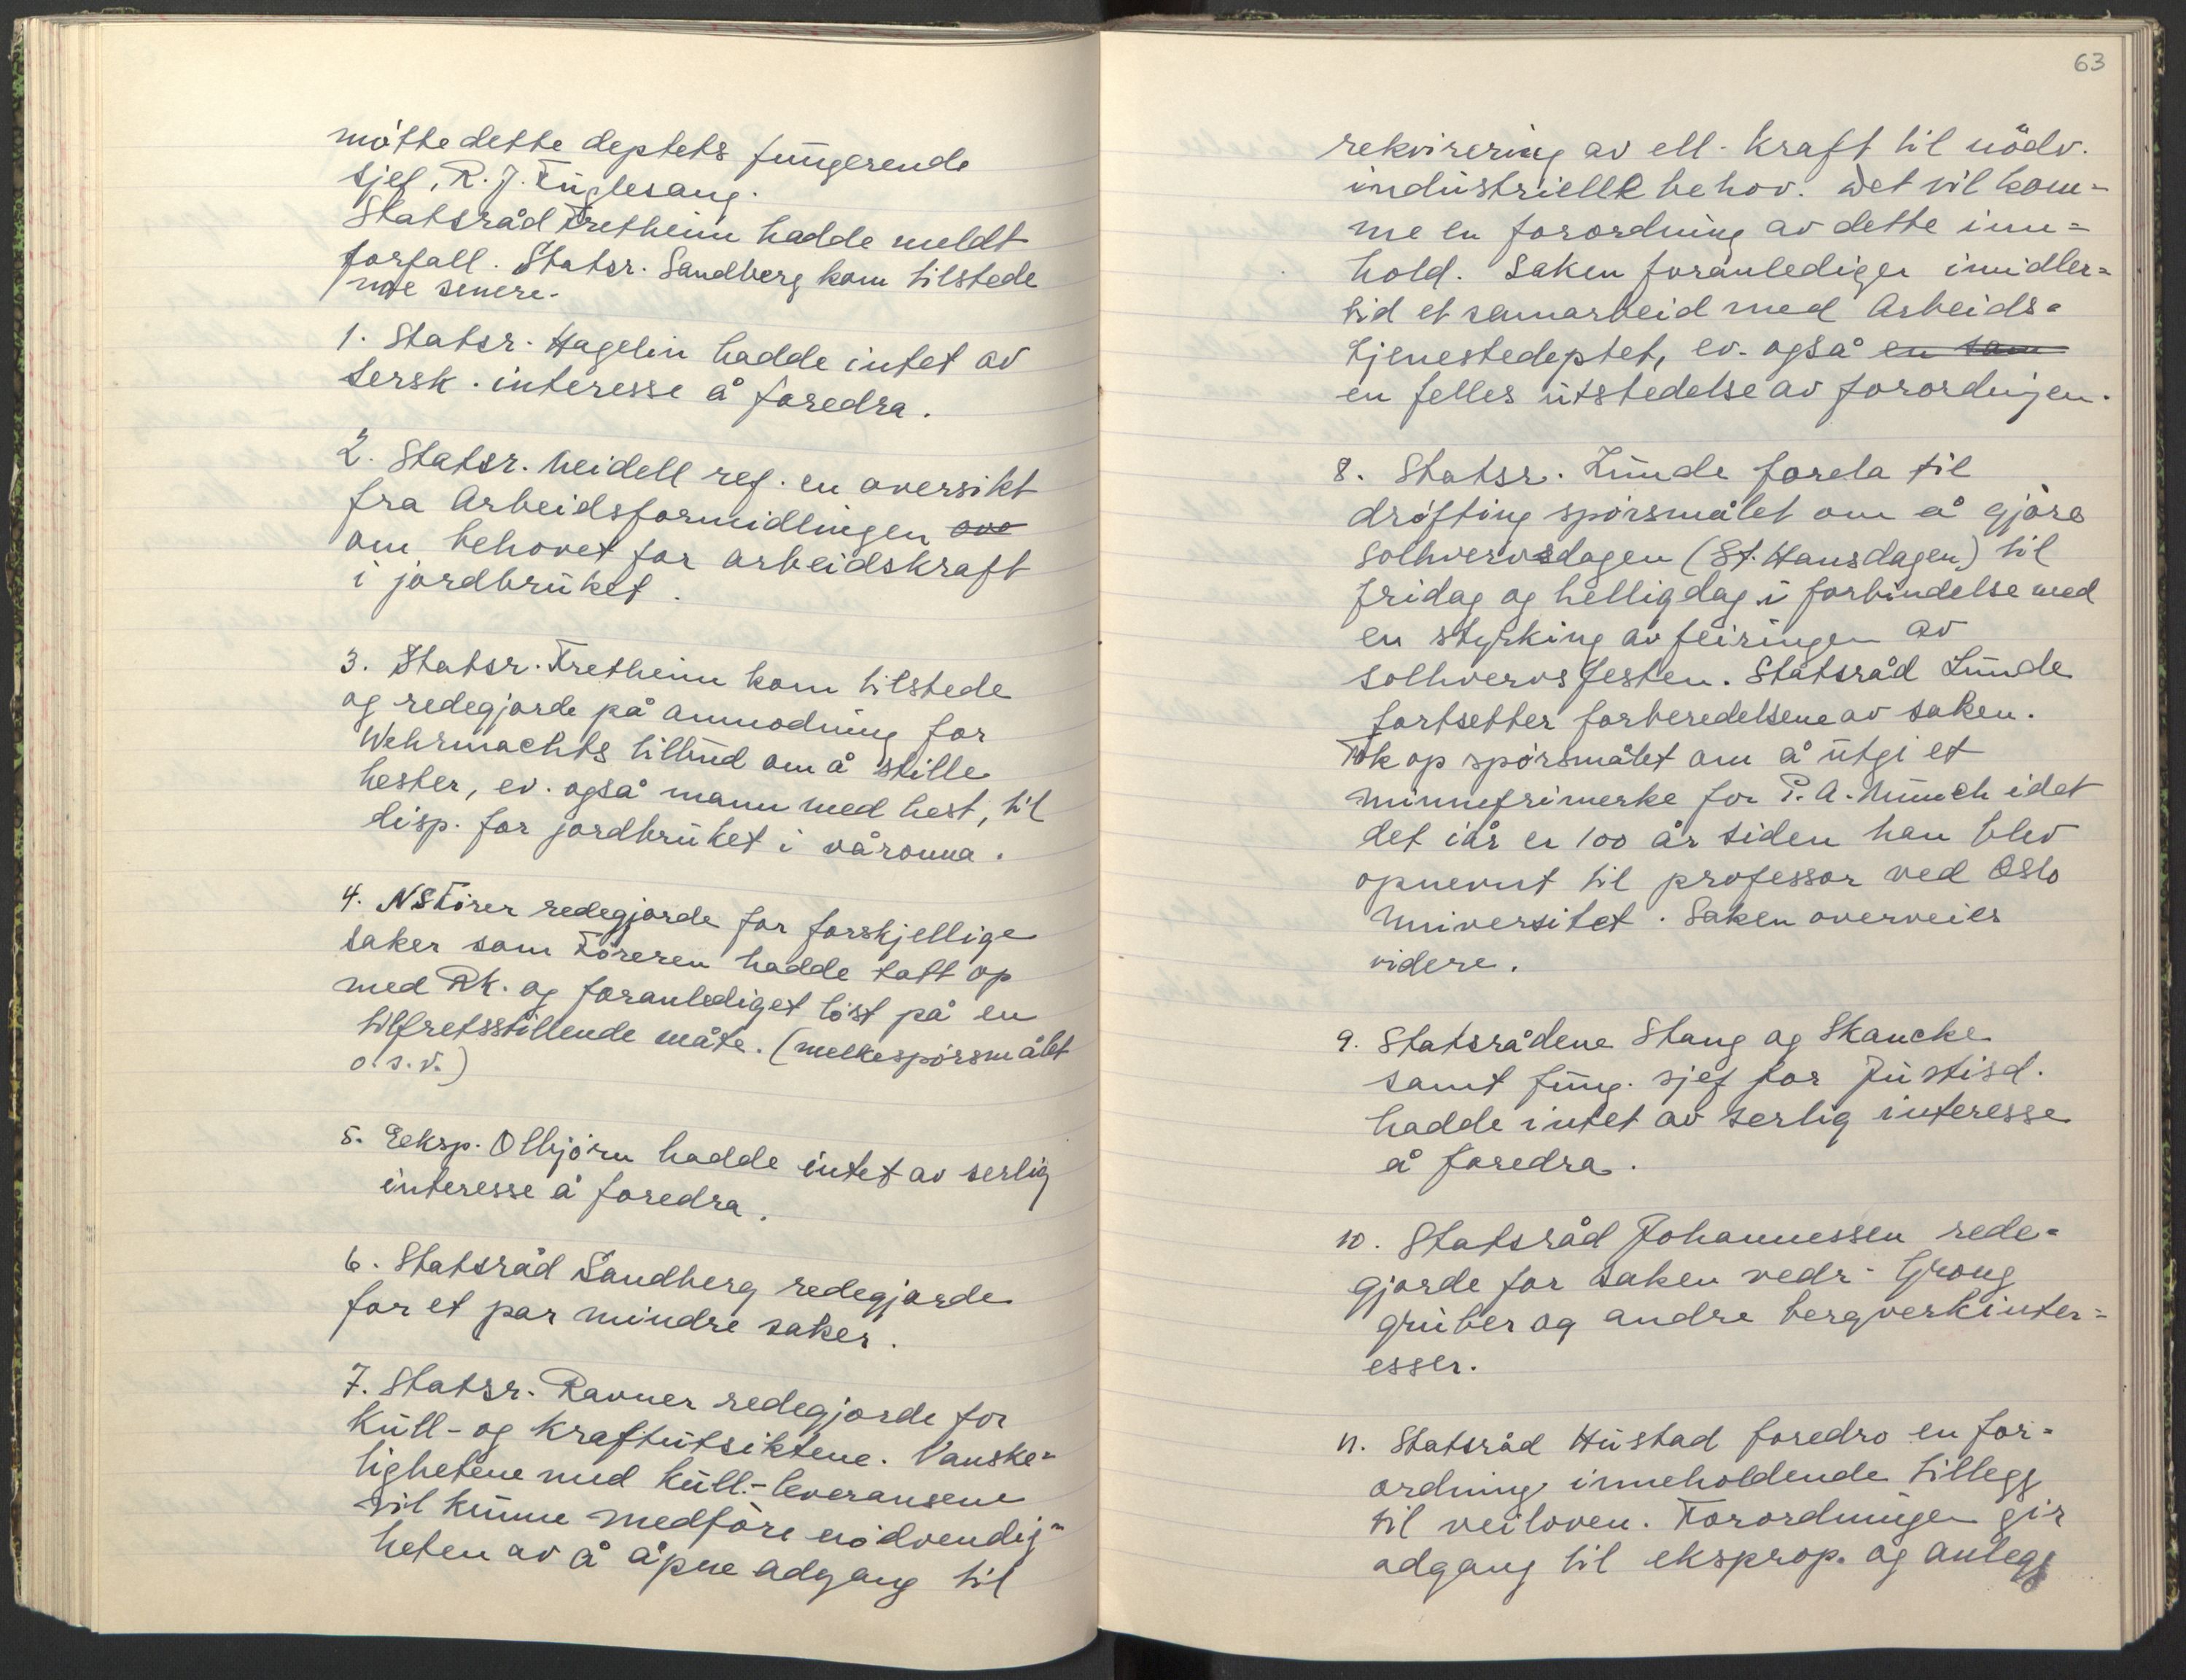 møtte dette deptets fungerende
sjef, R. J. Fuglesang.
Statsråd Fretheim hadde meldt
forfall. Statsr. Sandberg kom tilstede
noe senere.
1. Statsr. Hagelin hadde intet av
sersk. interesse å foredra.
2. Statsr. Meidell ref. en oversikt
fra Arbeidsformidlingen ove
om behovet for arbeidskraft
i jordbruket.
3. Statsr. Fretheim kom tilstede
og redegjorde på anmodning for
Wehrmachts tilbud om å stille
hester, ev. også mann med hest, til
disp. for jordbruket i våronna.
4. NS Fører redegjorde for forskjellige
saker som Føreren hadde tatt op
med RK. og foranlediget løst på en
tilfretsstillende måte. (melkespørsmålet
o.s.v.)
5. Eeksp. Olbjørn hadde intet av serlig
interesse å foredra.
6. Statsråd Sandberg redegjorde
for et par mindre saker.
7. Statsr. Ravner redegjorde for
kull- og kraftutsiktene. Vanske=
lighetene med kull.-leveransene
vil kunne medføre nødvendig=
heten av å åpne adgang til
63
rekvirering av ell. kraft til nödv.
industriell behov. Det vil kom=
me en forordning av dette inn=
hold. Saken foranlediger imidler=
tid et samarbeid med Arbeids=
tjenestedeptet, ev. også en sam
en felles utstedelse av forordnijen.
8. Statsr. Lunde forela til
drøfting spørsmålet om å gjøre
solhvervsdagen (St. Hansdagen) til
fridag og helligdag i forbindelse med
en styrking av feiringen av
solhvervsfesten. Statsråd Lunde
fortsetter forberedelsene av saken.
Tok op spørsmålet om å utgi et
minnefrimerke for P. A. Munch idet
det iår er 100 år siden han blev
opnevnt til professor ved Oslo
Universitet. Saken overveies
videre.
9. Statsrådene Stang og Skancke
samt fung. sjef for Justisd.
hadde intet av serlig interesse
å foredra.
10. Statsråd Johannessen rede=
gjorde for saken vedr. Grong
gruber og andre bergverkinter=
esser.
11. Statsråd Hustad foredro en for=
ordning inneholdende tillegg
til veiloven. Forordningen gir
adgang til eksprop. og anlegg